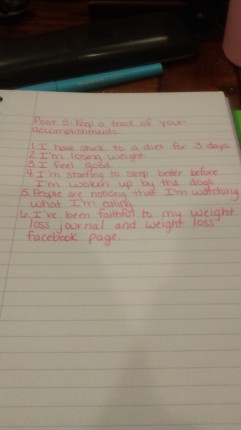 Part 5: Keep a track of your
accomplishments.
1. I have stuck to a diet for 3 days
2. I'm losing weight.
3. I feel good.
4. I'm starting to sleep better before
I'm woken up by the dogs.
5. People are noticing that I'm watching
what I'm eating.
6. I've been faithful to my weight
loss journal and weight loss
facebook page.